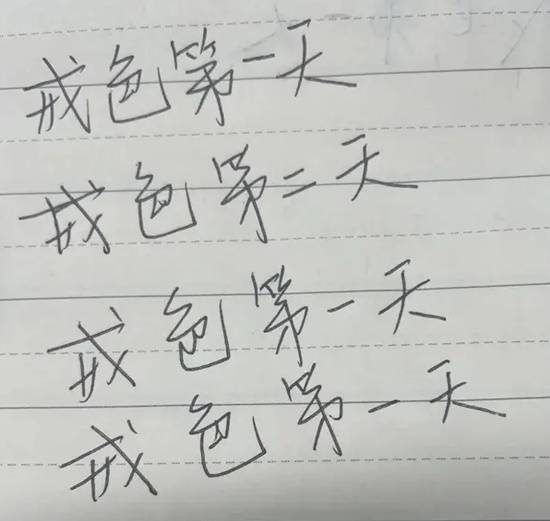 戒色第一天
戒色第二天
戒色第一天
戒色第一天